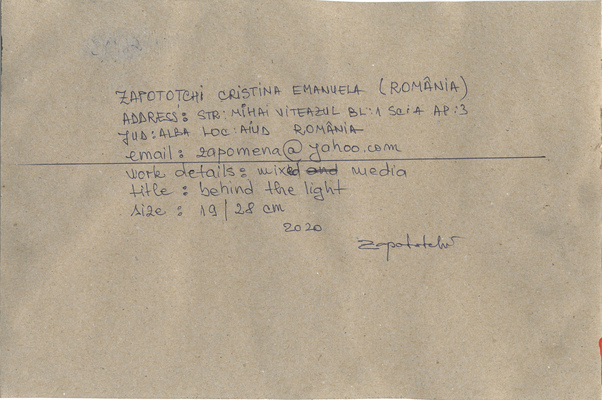 ZAPOTOTCHI CRISTINA EMANUELA (ROMÂNIA)
ADDRESS: STR: MIHAI VITEAZUL BL:1 SC:A AP:3
JUD: ALBA LOC: AIUD ROMÂNIA
email: zapomena@yahoo.com
work details: mixed and media
title: behind the light
size: 19/28 cm
2020
Zapototchi